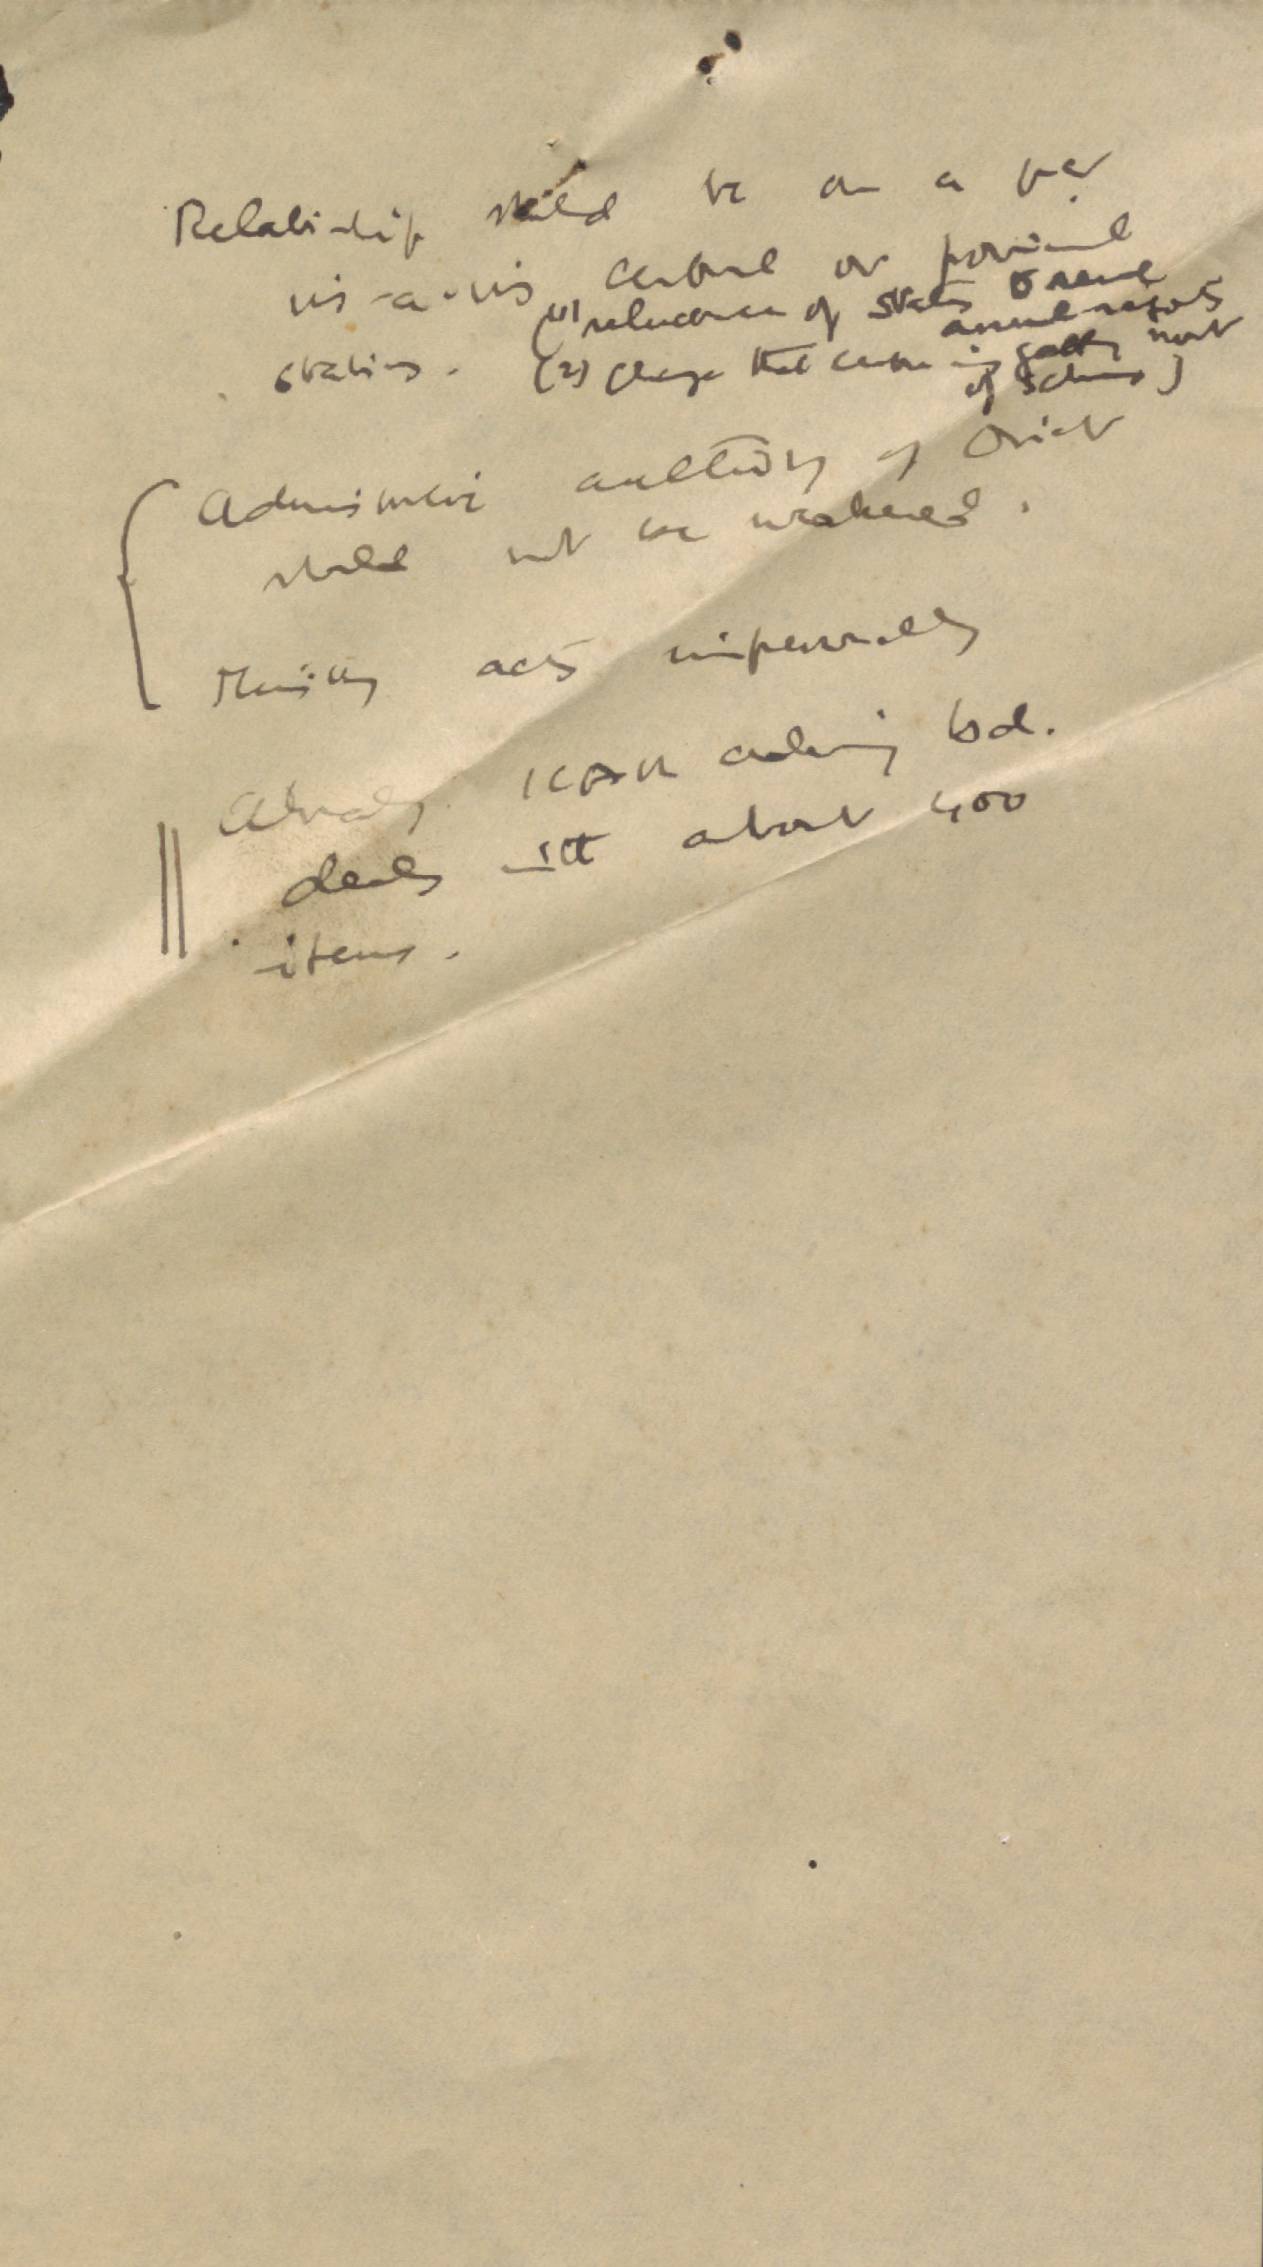 Relationship should be on a par
vis-a-vis central or provincial
stations. (1) reluctance of States to send
annual reports
(2) charge that centre is getting most
of schemes)
Administrative authority of Direct
should not be weakened.
Ministry acts impersonally
Already ICAR advisory bd.
deals with about 400
items.